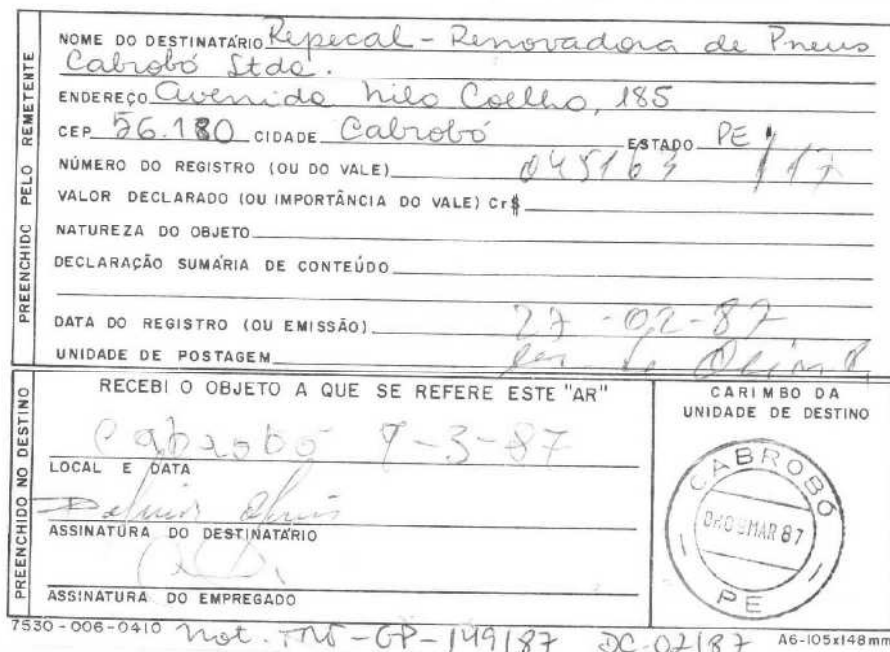 PREENCHIDO PELO REMETENTE
NOME DO DESTINATÁRIO Repecal - Renovadora de Pneus
Cabrobó Ltda.
ENDEREÇO Avenida Nilo Coelho, 185
CEP 56.180 CIDADE Cabrobó ESTADO PE
NÚMERO DO REGISTRO (OU DO VALE) 045163
VALOR DECLARADO (OU IMPORTÂNCIA DO VALE) Cr$
NATUREZA DO OBJETO
DECLARAÇÃO SUMÁRIA DE CONTEÚDO
DATA DO REGISTRO (OU EMISSÃO) 27-02-87
UNIDADE DE POSTAGEM
PREENCHIDO NO DESTINO
RECEBI O OBJETO A QUE SE REFERE ESTE "AR"
Cabrobó 9-3-87
LOCAL E DATA
ASSINATURA DO DESTINATÁRIO
ASSINATURA DO EMPREGADO
CARIMBO DA
UNIDADE DE DESTINO
CABROBÓ
MAR 87
PE
7530-006-0410 Not. GP-149/87 DC-02/87 A6-105x148mm